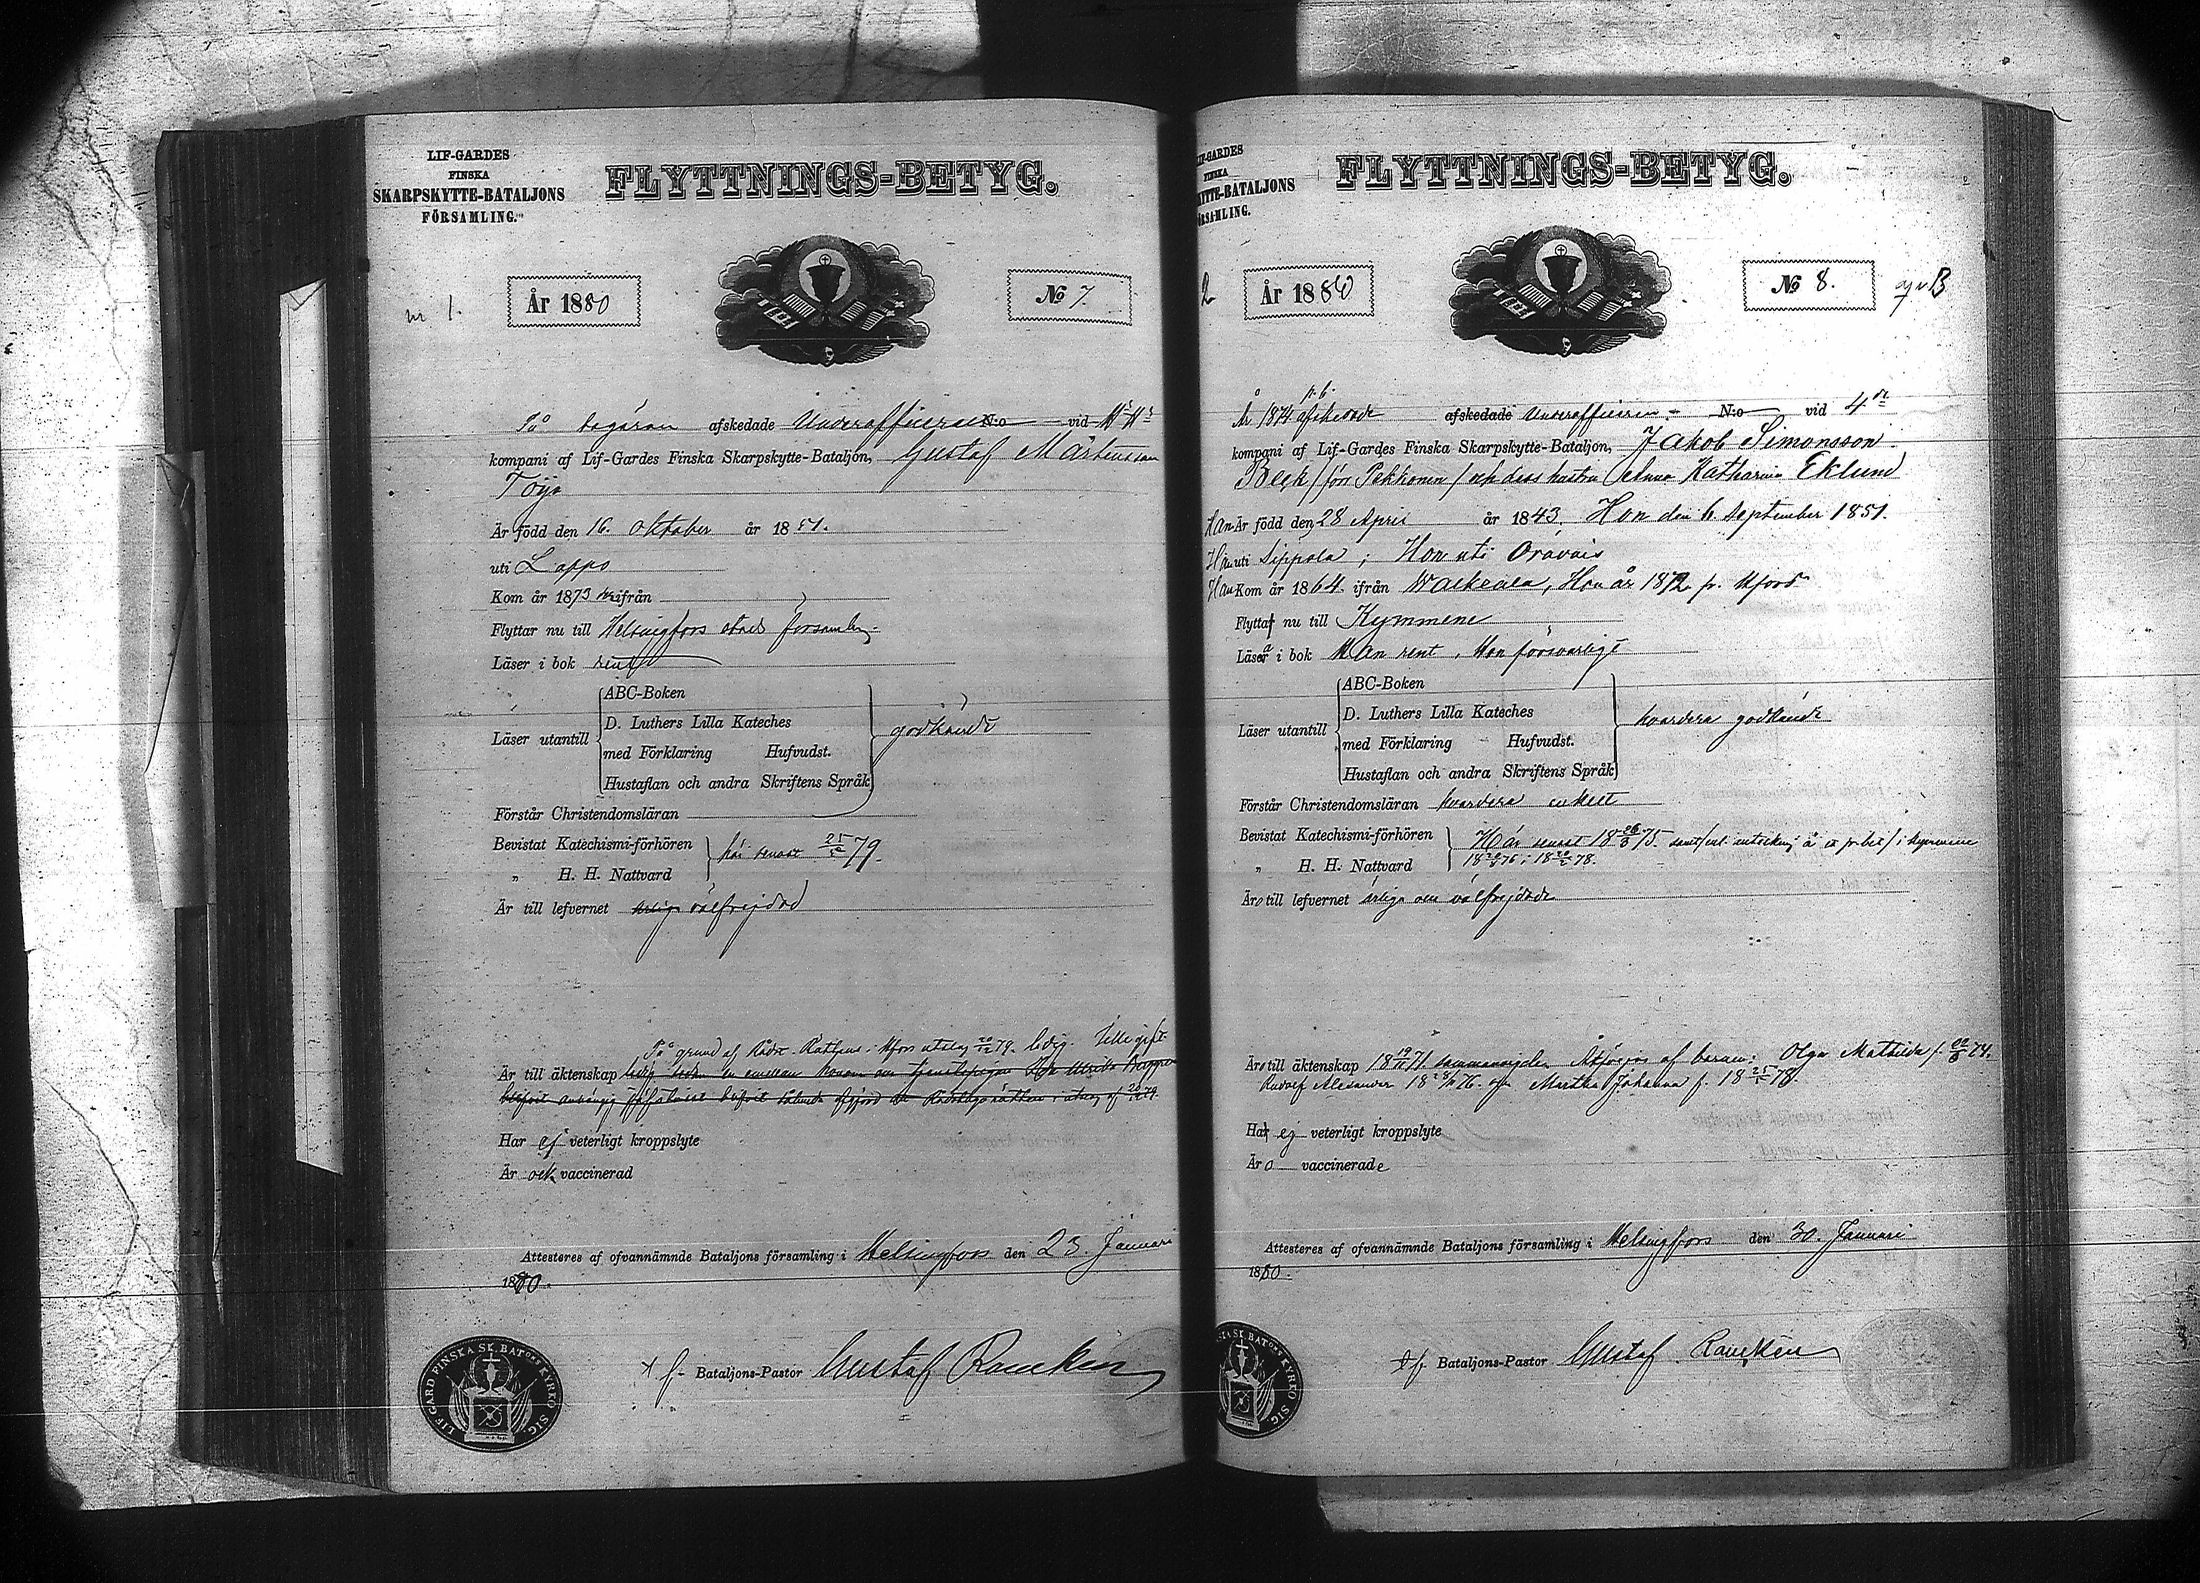 LIF-GARDES
FINSKA
SKARPSKYTTE-BATALJONS
FÖRSAMLING.
FLYTTNINGS-BETYG.
nr 1.
År 1880
No 7.
På begäran afskedade Underofficeren N:o vid
kompani af Lif-Gardes Finska Skarpskytte-Bataljon, Gustaf Mårtensson
Är född den 16. Oktober år 1851.
uti Lappo
Kom år 1873 ifrån
Flyttar nu till Helsingfors stads församling.
Läser i bok rent
Läser utantill
ABC-Boken
D. Luthers Lilla Kateches
med Förklaring Hufvudst.
Hustaflan och andra Skriftens Språk
godkändt
Förstår Christendomsläran
Bevistat Katechismi-förhören
„ H. H. Nattvard
här senast 79.
Är till lefvernet ärlig välfrejdad
På grund af utslag 79. ledig. Till gift.
Är till äktenskap
Har ej veterligt kroppslyte
Är och vaccinerad
Attesteres af ofvannämnde Bataljons församling i Helsingfors den 23. Januari
1880.
LIF GARD FINSKA SK. BATONS KYRKO SIG.
Bataljons-Pastor Gustaf Rancken
LIF-GARDES
FINSKA
SKYTTE-BATALJONS
FÖRSAMLING.
FLYTTNINGS-BETYG.
2
År 1880
No 8.
p. 6.
År 1874 afskedade afskedade Underofficeren N:o vid 4de
kompani af Lif-Gardes Finska Skarpskytte-Bataljon, Jakob Simonsson
Beck /förr Pekkonen/ och dess hustru Anna Katharina Eklund
Han Är född den 28 April år 1843. Hon den 6 September 1851.
Han uti Sippola; Hon uti Oravais
Han Kom år 1864 ifrån Walkeala, Hon år 1872 fr. Hfors
Flytta nu till Kymmene
Läsa i bok Han rent, Hon försvarligt
Läser utantill
ABC-Boken
D. Luthers Lilla Kateches
med Förklaring Hufvudst.
Hustaflan och andra Skriftens Språk
hvardera godkändt
Förstår Christendomsläran hvardera enkelt
Bevistat Katechismi-förhören
„ H. H. Nattvard
Här senast 18 75. i Kymmene
18 76; 18 78.
Äro till lefvernet ärliga och välfrejdade
Äro till äktenskap 18 71. sammanvigda. Åtföljas af barnen: Olga Mathilda f. 74.
Rudolf Alexander 18 76. och Martha Johanna f. 18 78.
Ha ej veterligt kroppslyte
Äro vaccinerade
Attesteres af ofvannämnde Bataljons församling i Helsingfors den 30. Januari
1880.
SKA SK. BATONS KYRKO SIG.
Bataljons-Pastor Gustaf Rancken